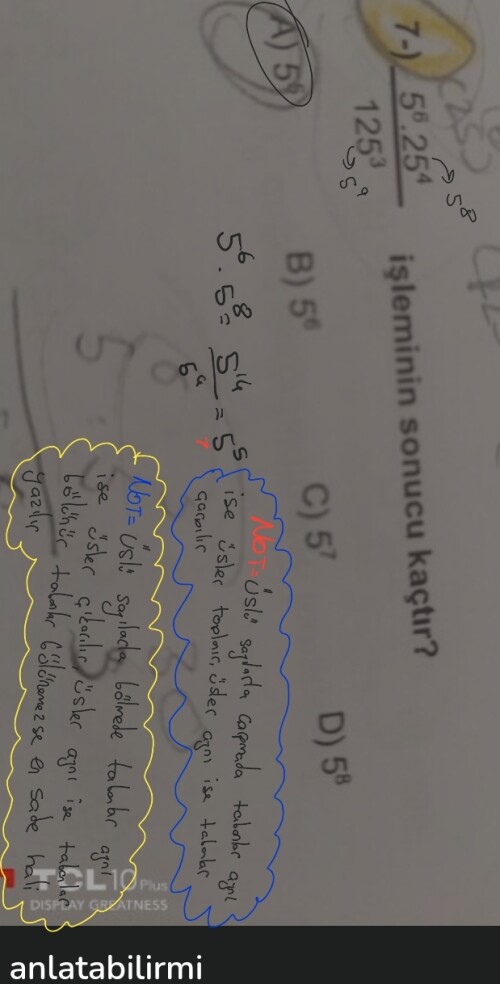 7-) 5⁶.25⁴ / 125³ işleminin sonucu kaçtır?
→5⁸
→5⁹
A) 5⁵ B) 5⁶ C) 5⁷ D) 5⁸
5⁶ . 5⁸ = 5¹⁴ / 5⁹ = 5⁵
NOT= Üslü sayılarda çarpmada tabanlar aynı
ise üsler toplanır, üsler aynı ise tabanlar
çarpılır
NOT= Üslü sayılarda bölmede tabanlar aynı
ise üsler çıkarılır, üsler aynı ise tabanlar
bölünür tabanlar bölünemezse en sade hali
yazılır
TCL 10 Plus
DISPLAY GREATNESS
anlatabilirmi